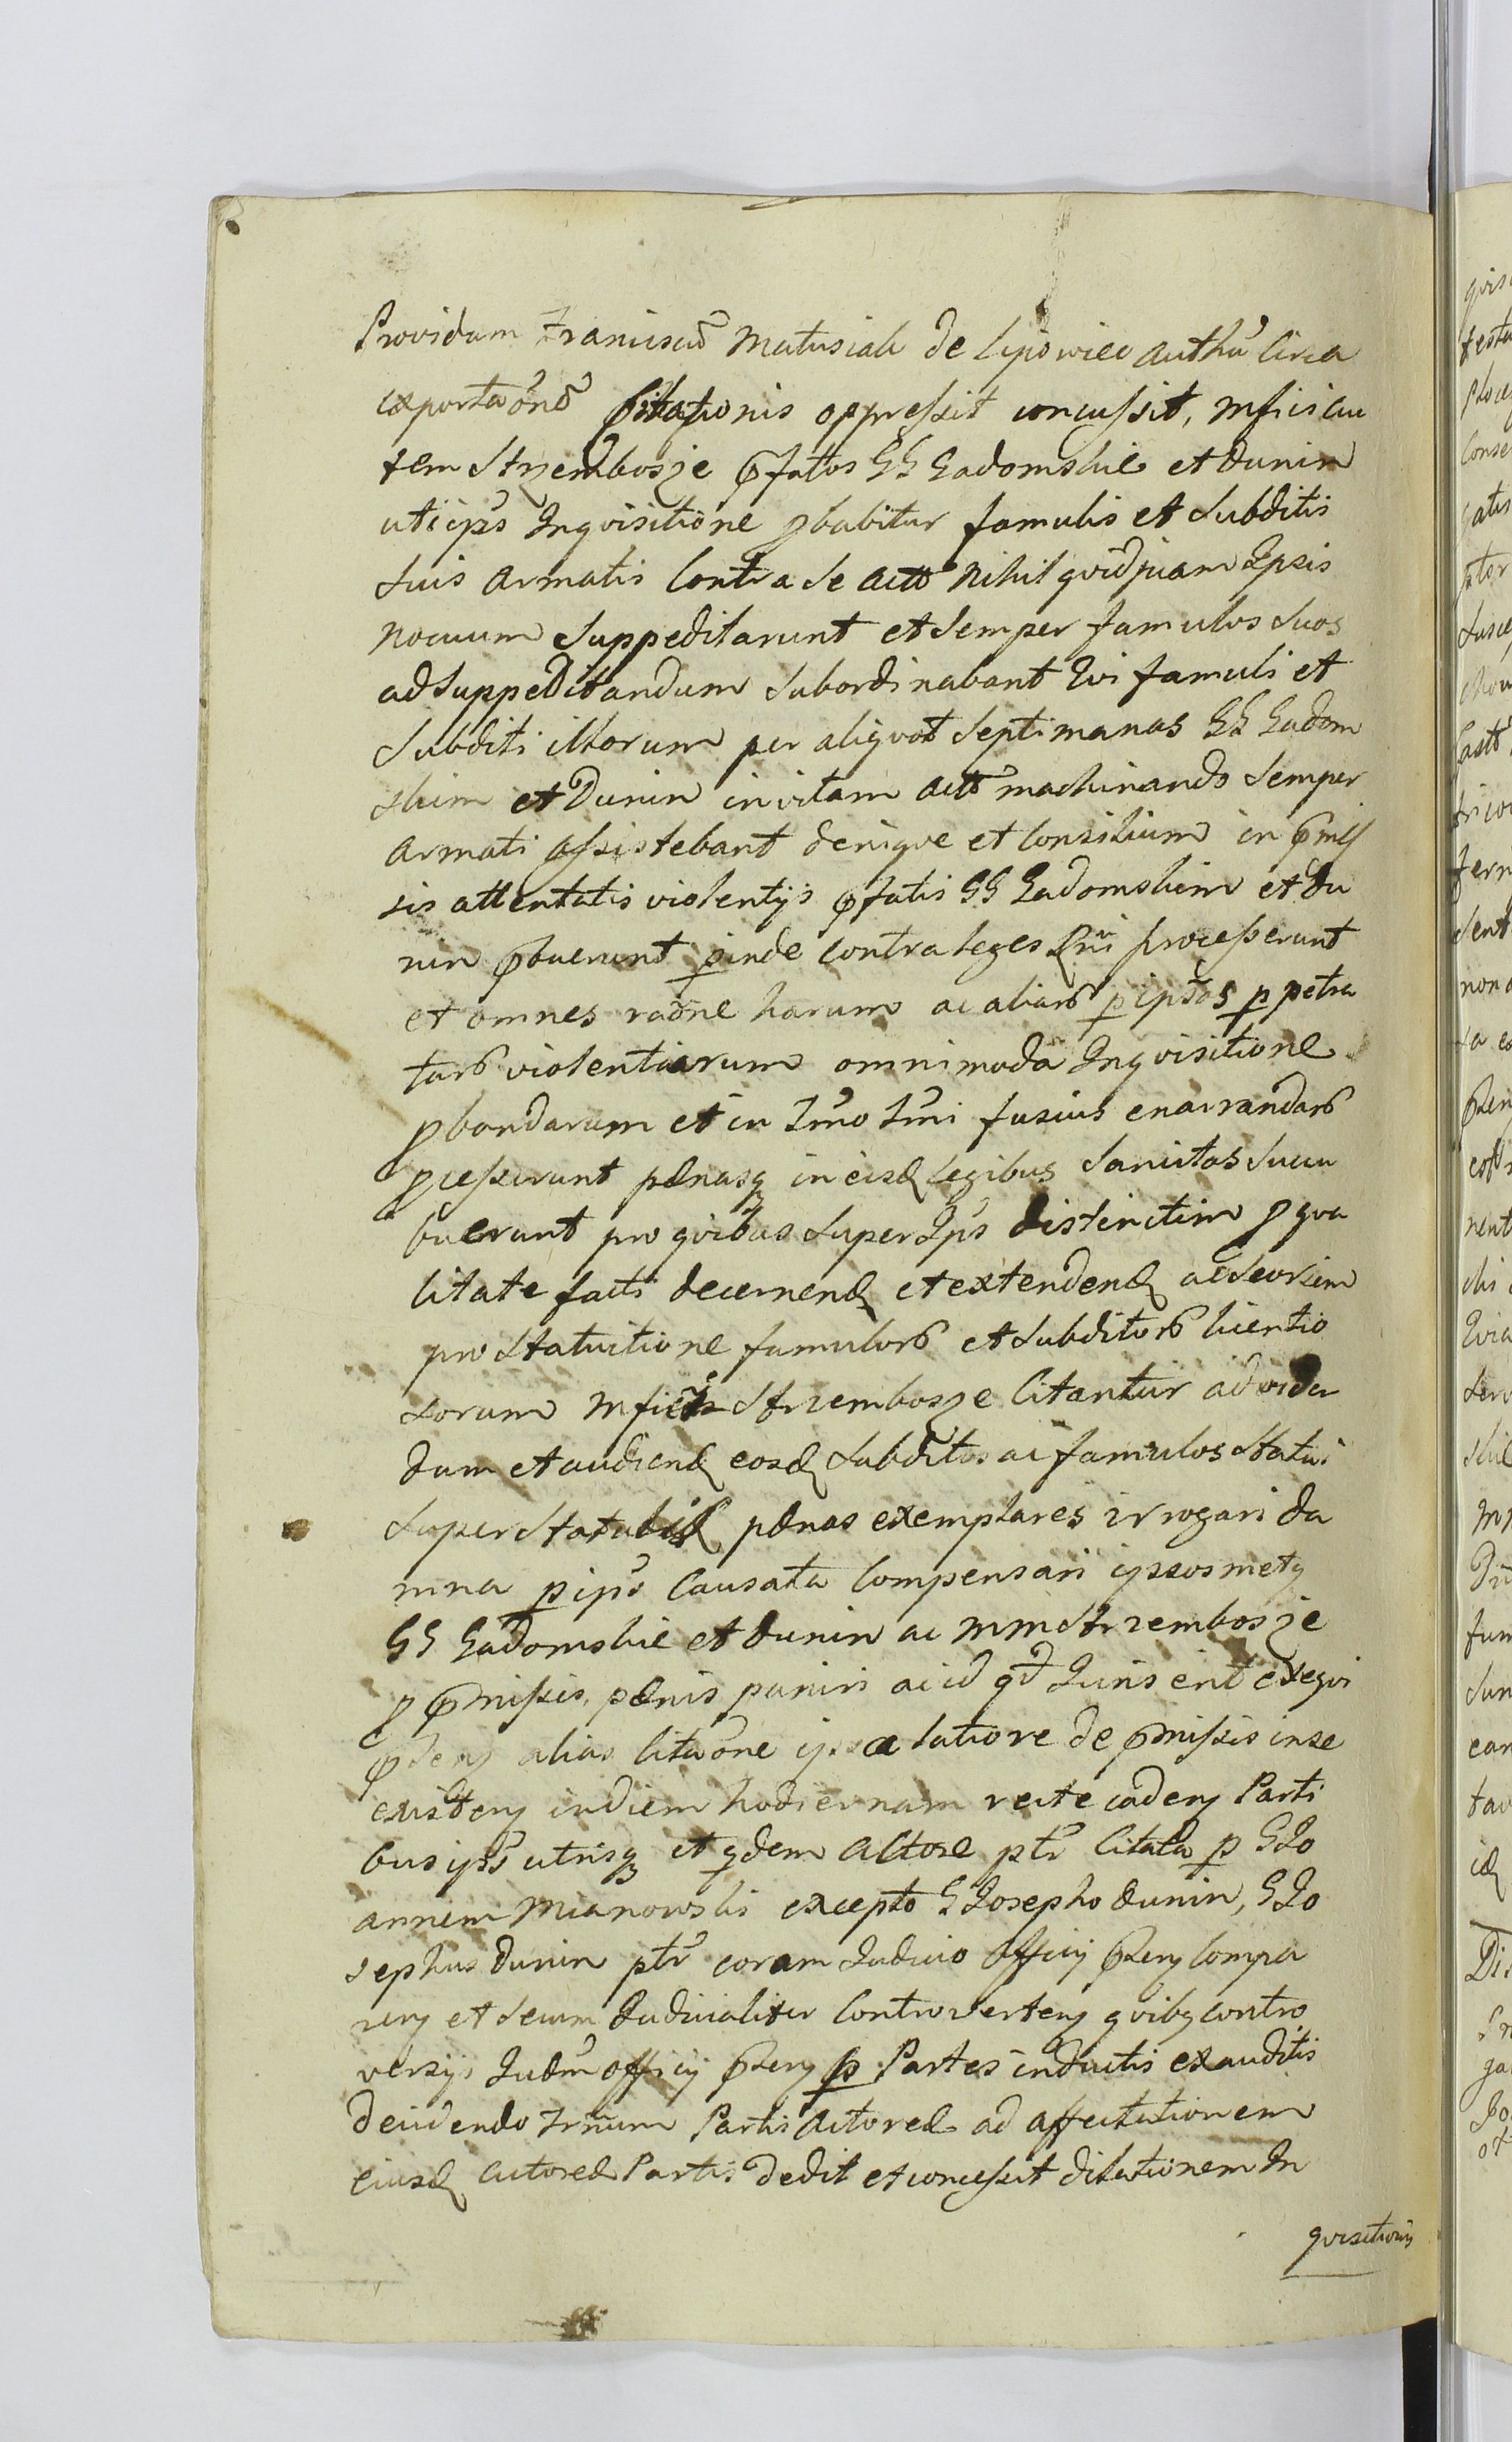 Providum Franciscũ Matusiak de Lipowiec Authũ circa
exportaõnẽ Citationis oppressit concussit, Mfici au
tem Strzembosze pfatos GG Gadomskie et Dunin
uti ips Inqvisitione pbabitur famulis et Subditis
Suis armatis Contra Se actt nihil qvidpiam Ipsis
nocuum Suppeditarunt et Semper famulos Suos
ad Suppeditandum Subordinabant Qvi famuli et
Subditi illorum per aliqvot Septimanas GG Gadom
skim et Dunin in vitam actt machinando Semper
armati assistebant deniqve et Consilium in pmis
sis attentatis violentijs pfatis GG Gadomskim et Du
nin pbuerunt pinde contra leges Rni processerunt
et omnes raõne harum ac aliarũ p ipsos p petra
tarũ violentiarum omnimoda Inqvisitione
pbandarum et in Tmo Tmi fusius enarrandarũ
pcesserunt pænasq in eisd legibus Sancitas Succu
buerunt pro qvibus Super Ips distinctim p qva
litate facti decernend et extendend ac Seorsim
pro Statuitione famulorũ et Subditorũ licentio
sorum Mfici Strzembosze Citantur ad viden
dum et audiend eosd Subditos ac famulos Statui
Super Statutis pænas exemplares irrogari da
mna p ips Causata Compensari ipsosmetq
GG Gadomskie et Dunin ac MM Strzembosze
p pmissis, pænis puniri ac id qd Juris erit exeqvi
pdens alias Citaõne ipsa latiore de pmissis in se
existen in diem hodiernam recte caden Parti
bus ips utrisq et qdem Actore ptr Citata p G Jo
annem Mianowski excepto G Josepho Dunin, G Jo
sephus Dunin ptr coram Judicio Officij pzen Compa
ren et Secum Judicialiter Controverten qvibq contro
versijs Judm Officij pzen p Partes inductis exauditis
decidendo Trnum Partis Actoreæ ad affectationem
eiusd Actoreæ Partis dedit et concessit dilationem In
qvisitionis